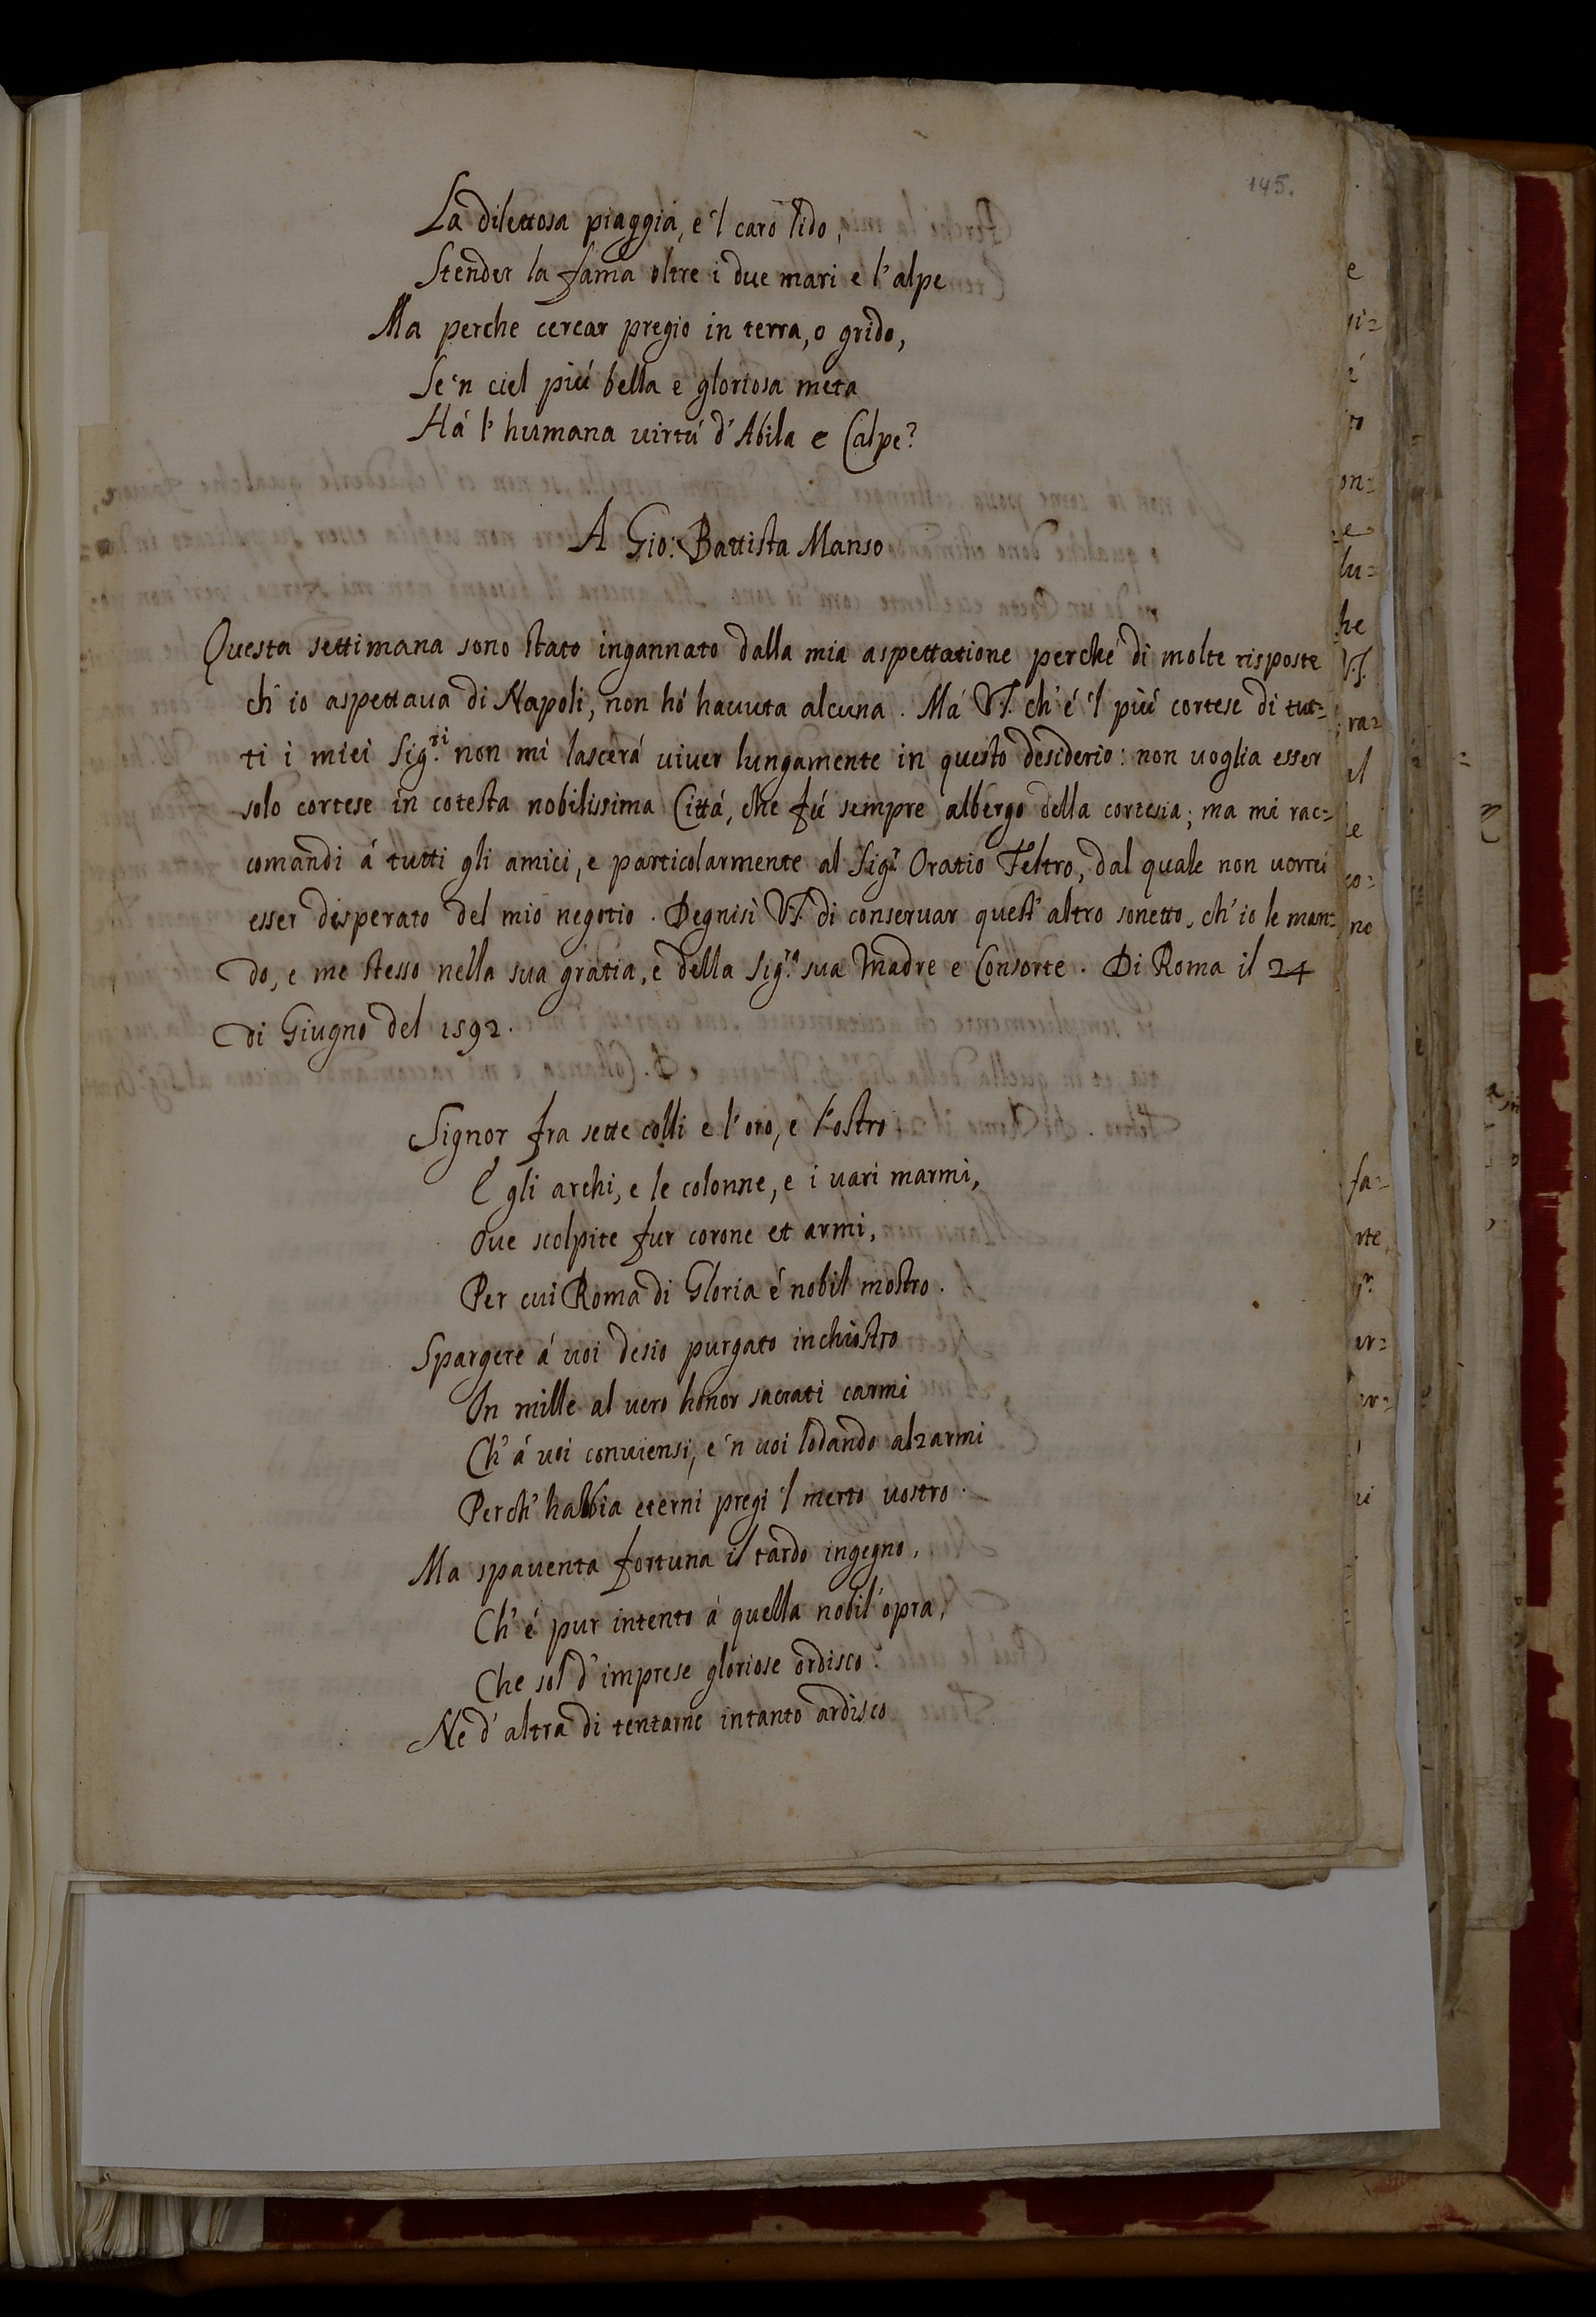 145.
La dilettosa piaggia, e 'l caro lido,
Stender la fama oltre i due mari e l' alpe
Ma perche cercar pregio in terra, o grido,
Se 'n ciel piú bella e gloriosa meta
Há l' humana uirtú d' Abila e Calpe?
A Gio: Battista Manso
Questa settimana sono stato ingannato dalla mia aspettatione perché di molte risposte
ch' io aspettaua di Napoli, non hó hauuta alcuna. Má V.S. ch' é 'l piú cortese di tut=
ti i miei Sig.ri non mi lascerá uiuer lungamente in questo desiderio: non uoglia esser
solo cortese in cotesta nobilissima Cittá, che fú sempre albergo della cortesia; ma mi rac=
comandi á tutti gli amici, e particolarmente al Sig.r Oratio Feltro, dal quale non uorrei
esser disperato del mio negotio. Degnisi V.S. di conseruar quest' altro sonetto, ch' io le man=
do, e me stesso nella sua gratia, e della Sig.ra sua Madre e Consorte. Di Roma il 24
di Giugno del 1592.
Signor fra sette colli e l' oro, e l' ostro
E gli archi, e le colonne, e i uari marmi,
Oue scolpite fur corone et armi,
Per cui Roma di Gloria é nobil mostro.
Spargere á uoi desio purgato inchiostro
In mille al uero honor sacrati carmi
Ch' á uoi conuiensi, e 'n uoi lodando alzarmi
Perch' habbia eterni pregi 'l merto uostro.
Ma spauenta fortuna il tardo ingegno,
Ch' é pur intento á quella nobil' opra,
Che sol d' imprese gloriose ordisco.
Ne d' altra di tentarne intanto ardisco